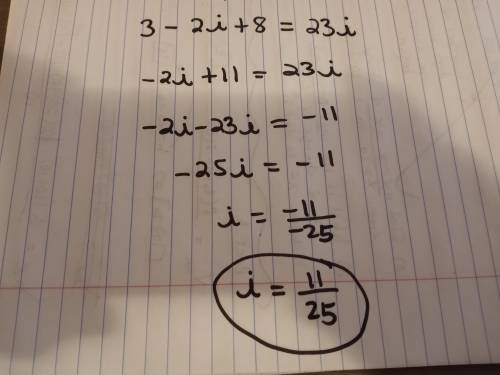 3 - 2i + 8 = 23i
-2i + 11 = 23i
-2i - 23i = -11
-25i = -11
i = -11/-25
i = 11/25